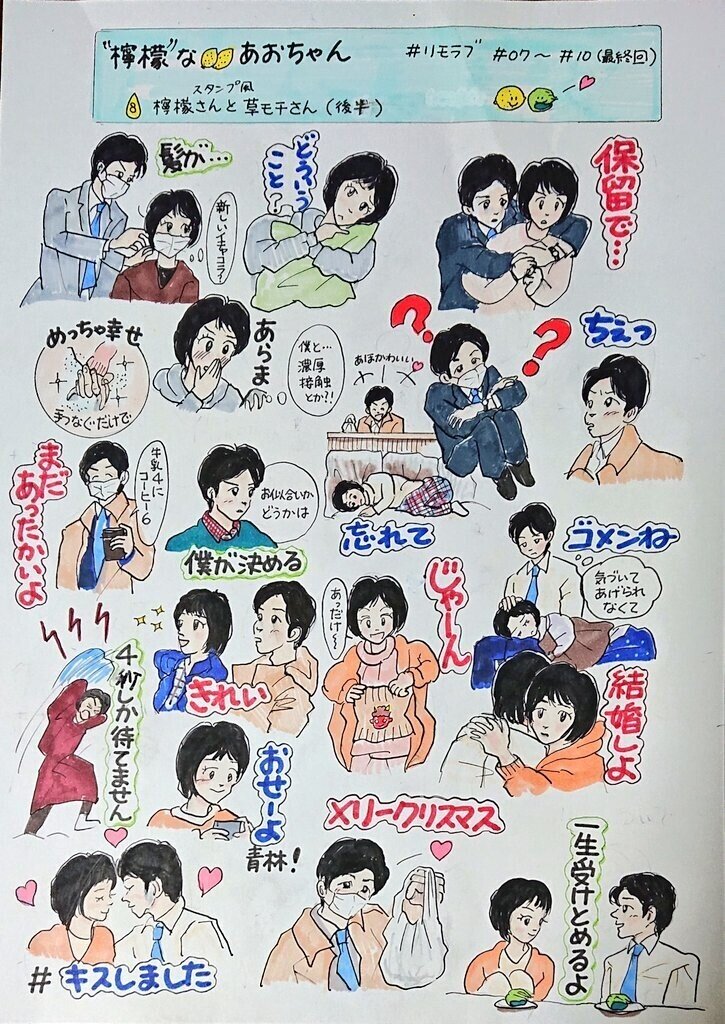 "檸檬"な🍋🍋あおちゃん
#リモラブ #07〜#10(最終回)
スタンプ風
⑧ 檸檬さんと草モチさん(後半)
髪が…
新しいイヤコラ!
どういう
こと?
保留で…
めっちゃ幸せ
手つなぐだけで
あらま
僕と…
濃厚
接触
とか?!
あほかわいい
??
ちぇっ
まだ
あったかいよ
牛乳4に
コーヒー6
お似合いか
どうかは
僕が決める
忘れて
ゴメンね
気づいて
あげられ
なくて
4秒しか待てません
きれい
あっだけ〜
じゃーん
結婚しよ
おせーよ
青林!
メリークリスマス
一生受けとめるよ
#キスしました